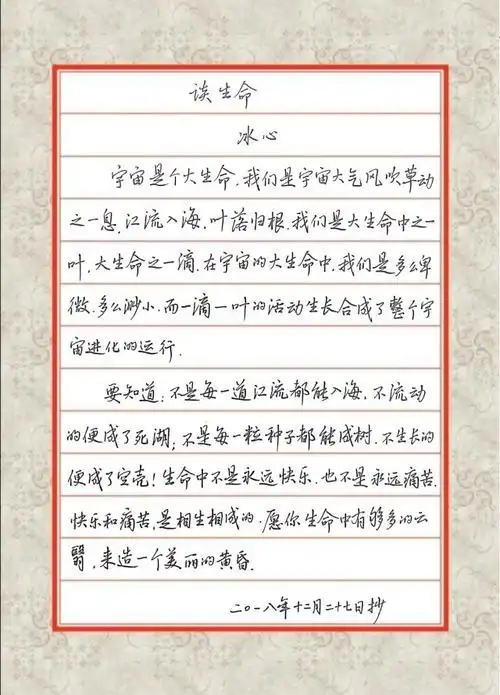 谈生命
冰心
宇宙是个大生命.我们是宇宙大气风吹草动
之一息.江流入海,叶落归根.我们是大生命中之一
叶,大生命之一滴.在宇宙的大生命中,我们是多么卑
微.多么渺小.而一滴一叶的活动生长合成了整个宇
宙进化的运行.
要知道:不是每一道江流都能入海,不流动
的便成了死湖;不是每一粒种子都能成树.不生长的
便成了空壳!生命中不是永远快乐.也不是永远痛苦.
快乐和痛苦,是相生相成的.愿你生命中有够多的云
翳,来造一个美丽的黄昏.
二〇一八年十二月二十七日抄